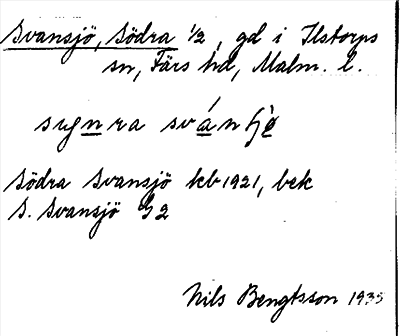 Svansjö, Södra 1/2, gd i Ilstorps
sn, Färs hd, Malm. l.
sugnra svánʃö̀
Södra Svansjö kb 1921, bek
S. Svansjö G2
Nils Bengtsson 1935